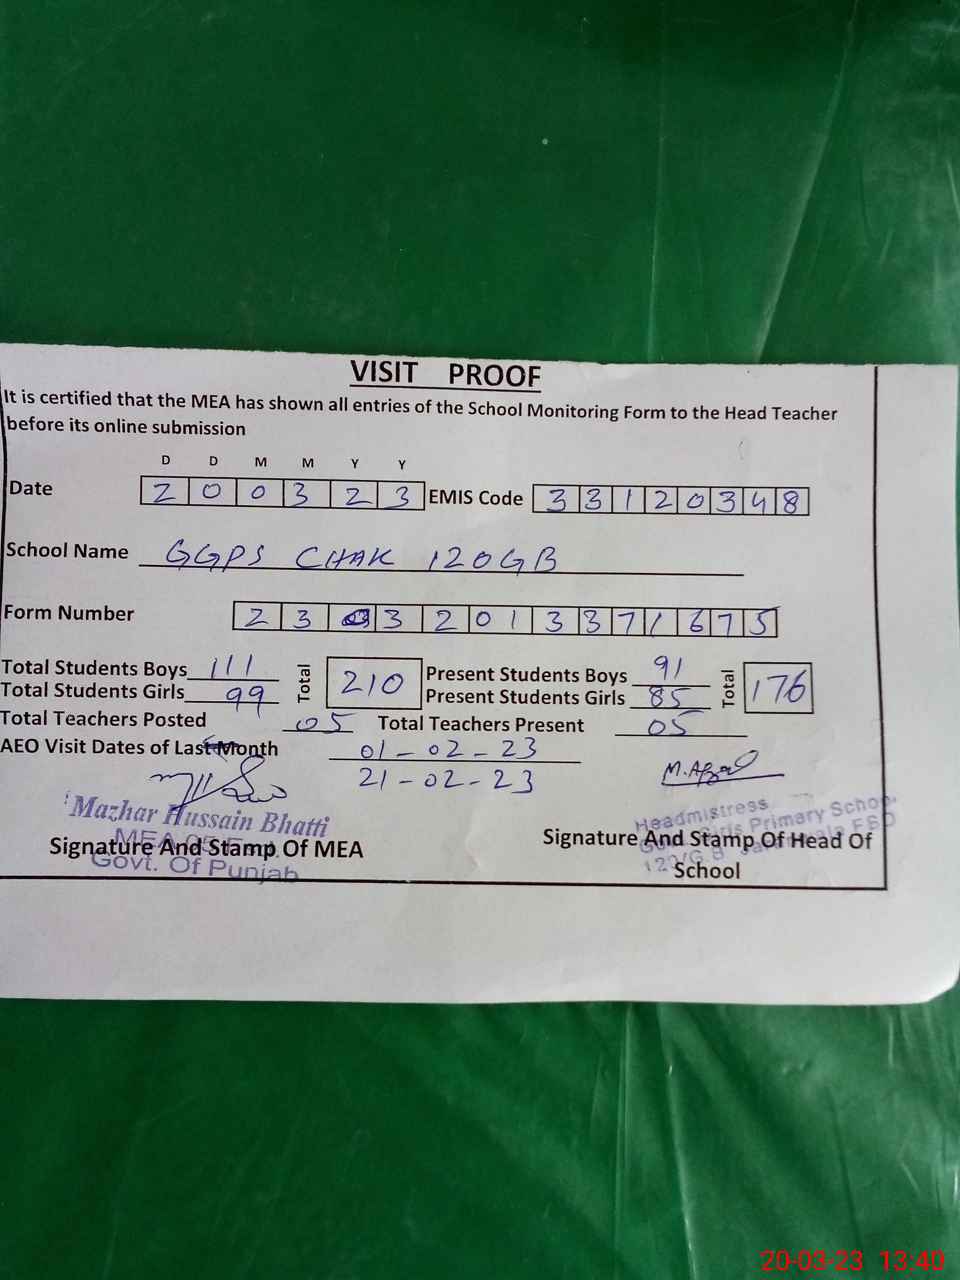 VISIT PROOF
It is certified that the MEA has shown all entries of the School Monitoring Form to the Head Teacher
before its online submission
D D M M Y Y
Date 2 0 0 3 2 3 EMIS Code 3 3 1 2 0 3 4 8
School Name GGPS CHAK 120GB
Form Number 2 3 0 3 2 0 1 3 3 7 1 6 7 5
Total Students Boys 111 Total 210 Present Students Boys 91 Total 176
Total Students Girls 99 Present Students Girls 85
Total Teachers Posted 05 Total Teachers Present 05
AEO Visit Dates of Last Month 01-02-23
21-02-23
M. Afzal
Mazhar Hussain Bhatti
MEA
Signature And Stamp Of MEA
Govt. Of Punjab
Headmistress
Girls Primary School
120/G.B FSD
Signature And Stamp Of Head Of
School
20-03-23 13:40